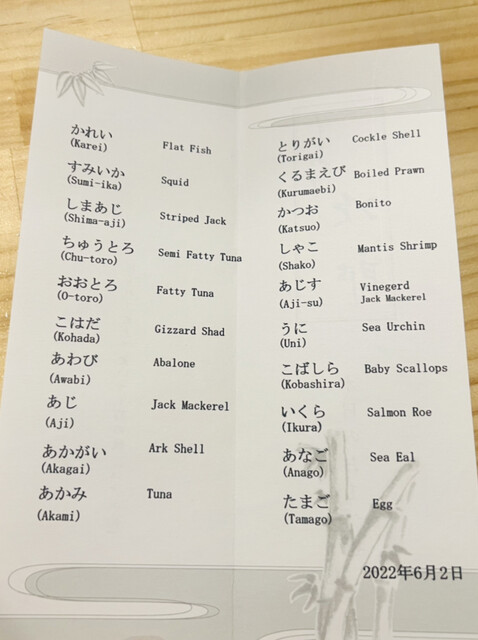 かれい
(Karei) Flat Fish
すみいか
(Sumi-ika) Squid
しまあじ
(Shima-aji) Striped Jack
ちゅうとろ
(Chu-toro) Semi Fatty Tuna
おおとろ
(O-toro) Fatty Tuna
こはだ
(Kohada) Gizzard Shad
あわび
(Awabi) Abalone
あじ
(Aji) Jack Mackerel
あかがい
(Akagai) Ark Shell
あかみ
(Akami) Tuna
とりがい
(Torigai) Cockle Shell
くるまえび
(Kurumaebi) Boiled Prawn
かつお
(Katsuo) Bonito
しゃこ
(Shako) Mantis Shrimp
あじす
(Aji-su) Vinegerd
Jack Mackerel
うに
(Uni) Sea Urchin
こばしら
(Kobashira) Baby Scallops
いくら
(Ikura) Salmon Roe
あなご
(Anago) Sea Eal
たまご
(Tamago) Egg
2022年6月2日